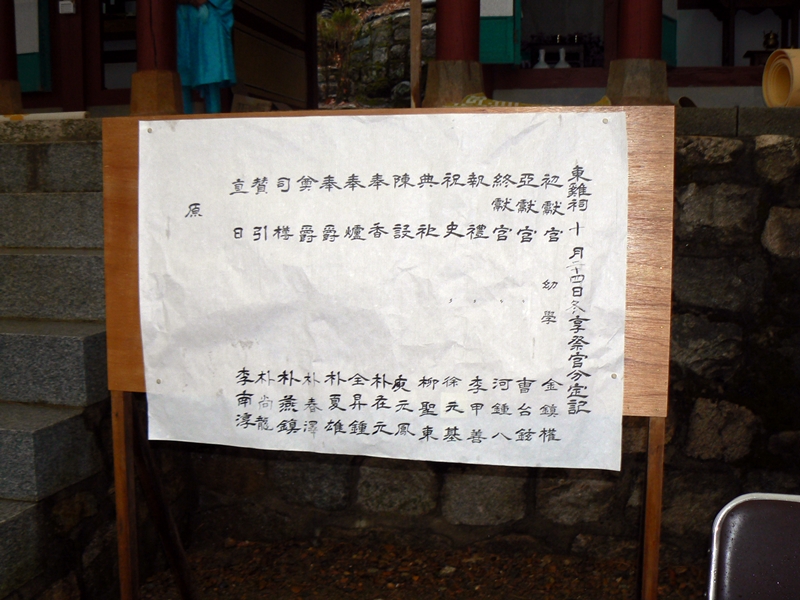 東雞祠 十月二十四日冬享祭官分定記
初獻官 幼學 金鎭權
亞獻官 〃 曺台鉉
終獻官 〃 河鍾八
執禮 〃 李甲善
祝史 〃 徐元基
典祀 柳聖東
陳設 庾元鳳
奉香 朴在元
奉爐 全昇鍾
奉爵 朴夏雄
奠爵 朴春澤
司樽 朴燕鎭
贊引 朴尙龍
直日 李南淳
原